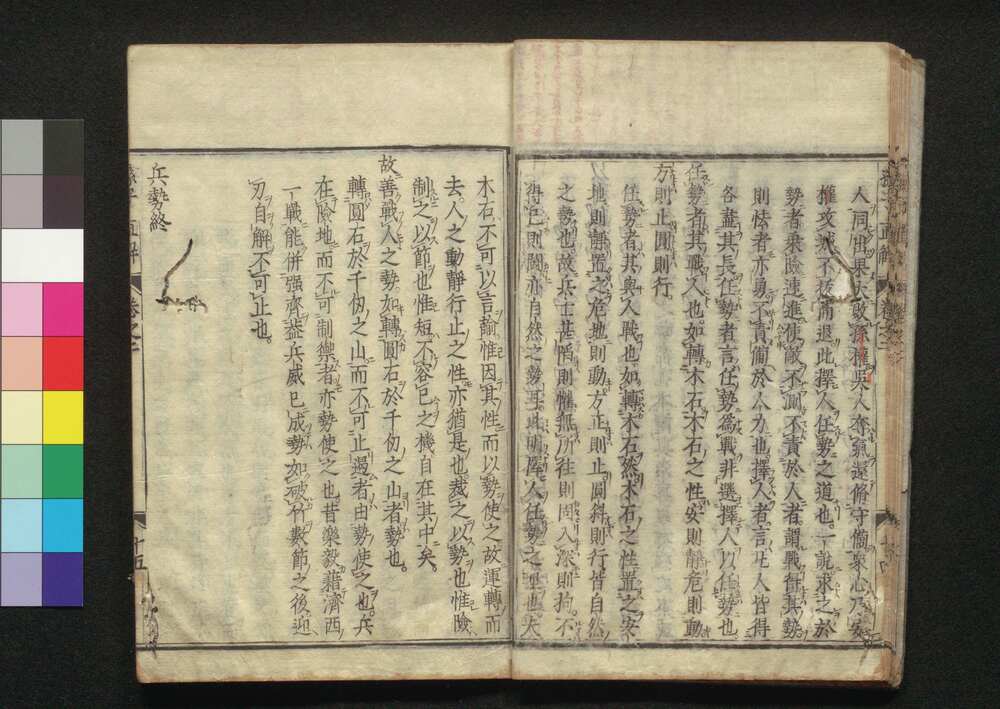 人同出果大敗孫權吳人奪氣還脩守備衆心乃安
權攻城不拔而退此擇人任勢之道也一說求之於
勢者乘險速進使敵不測不責於人者謂戰任其勢
則怯者亦勇不責備於人力也擇人者言凡人皆得
各盡其長任勢者言任勢爲戰非選擇人以任勢也
任勢者其戰人也如轉木石木石之性安則靜危則動
方則止圓則行
任勢者其與人戰也如轉木石然木石之性置之安
地則靜置之危地則動方正則止圓斜則行皆自然
之勢也故兵士甚陷則懼無所往則固入深則拘不
得已則鬭亦自然之勢耳此明擇人任勢之理也夫
木石不可以言諭惟因其性而以勢使之故運轉而
去人之動靜行止之性亦猶是也裁之以勢也惟險
制之以節也惟短不容已之機自在其中矣
故善戰人之勢如轉圓石於千仞之山者勢也
轉圓石於千仞之山而不可止遏者由勢使之也兵
在險地而不可制禦者亦勢使之也昔樂毅藉濟西
一戰能併强齊葢兵威已成勢如破竹數節之後迎
刃自解不可止也
兵勢終
十五